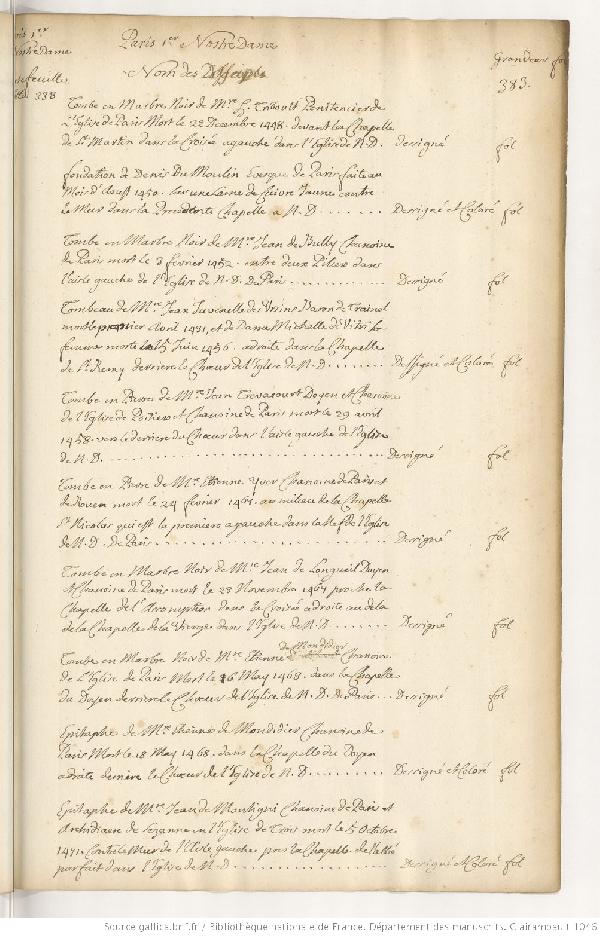 Paris 1er Nostre Dame
Nom des
Grandeur fol
383.
338
Tombe en Marbre Noir de Mre Penitencier de
L'Eglise de Paris Mort le 22 Decembre 1448. devant la Chapelle
de St Martin dans la Croisée a gauche dans l'Eglise de N.D. Dessigné fol
fondation de Denis Du Moulin Evesque de Paris
1450. sur une Lame de Cuivre Jaune contre
le Mur dans la Precedente Chapelle a N.D. ....... Dessigné et Coloré fol
Tombe en Marbre Noir de Mre Jean de Chanoine
de Paris mort le 3 fevrier 1452. entre deux Piliers dans
l'aisle gauche de l'Eglise de N. D. de Paris ........... Dessigné fol
Tombeau de Mre Jean Juvenelle des Ursins Baron de Trainel
mort le premier Avril 1431, et de Dame Michelle de Vitri sa
femme morte le 15 Juin 1456. a droite dans la Chapelle
de St Remy derriere le Chœur de l'Eglise de N.D. ...... Dessigné et Coloré fol
Tombe en Pierre de Mre Jean Doyen et Chanoine
de l'Eglise de Poitiers et Chanoine de Paris mort le 29 avril
1458. vers le derriere du Chœur dans l'aisle gauche de l'Eglise
de N.D. ........................... Dessigné fol
Tombe en Pierre de Mre Etienne Yver Chanoine de Paris et
de Rouen mort le 24 fevrier au milieu de la Chapelle
St Nicolas qui est la premiere a gauche dans la Nef de l'Eglise
de N.D. de Paris ....................... Dessigné fol
Tombe en Marbre Noir de Mre Jean de Longueil Doyen
et Chanoine de Paris mort le 28 Novembre proche la
Chapelle de l'Assomption dans la Croisée a droite au dela
de la Chapelle de la Vierge dans l'Eglise de N.D. ...... Dessigné fol
Tombe en Marbre Noir de Mre Etienne de Mondidier Chanoine
de L'Eglise de Paris Mort le 16 May 1468. dans la Chapelle
du Doyen derriere le Chœur de l'Eglise de N. D. de Paris .. Dessigné fol
Epitaphe de Mre Etienne de Mondidier Chanoine de
Paris Mort le 18 May 1468. dans la Chapelle du Doyen
a droite derriere le Chœur de l'Eglise de N.D. ........ Dessigné et Coloré fol
Epitaphe de Mre Jean de Montigni Chanoine de Paris et
Archidiacre de Sezanne en l'Eglise de Troies mort le 5 Octobre
1471. Contre le Mur de l'Aisle gauche pres la Chapelle
parfait dans l'Eglise de N.D. ................ Dessigné et Coloré fol
Source gallica.bnf.fr / Bibliothèque nationale de France. Département des manuscrits. Clairambault 1046